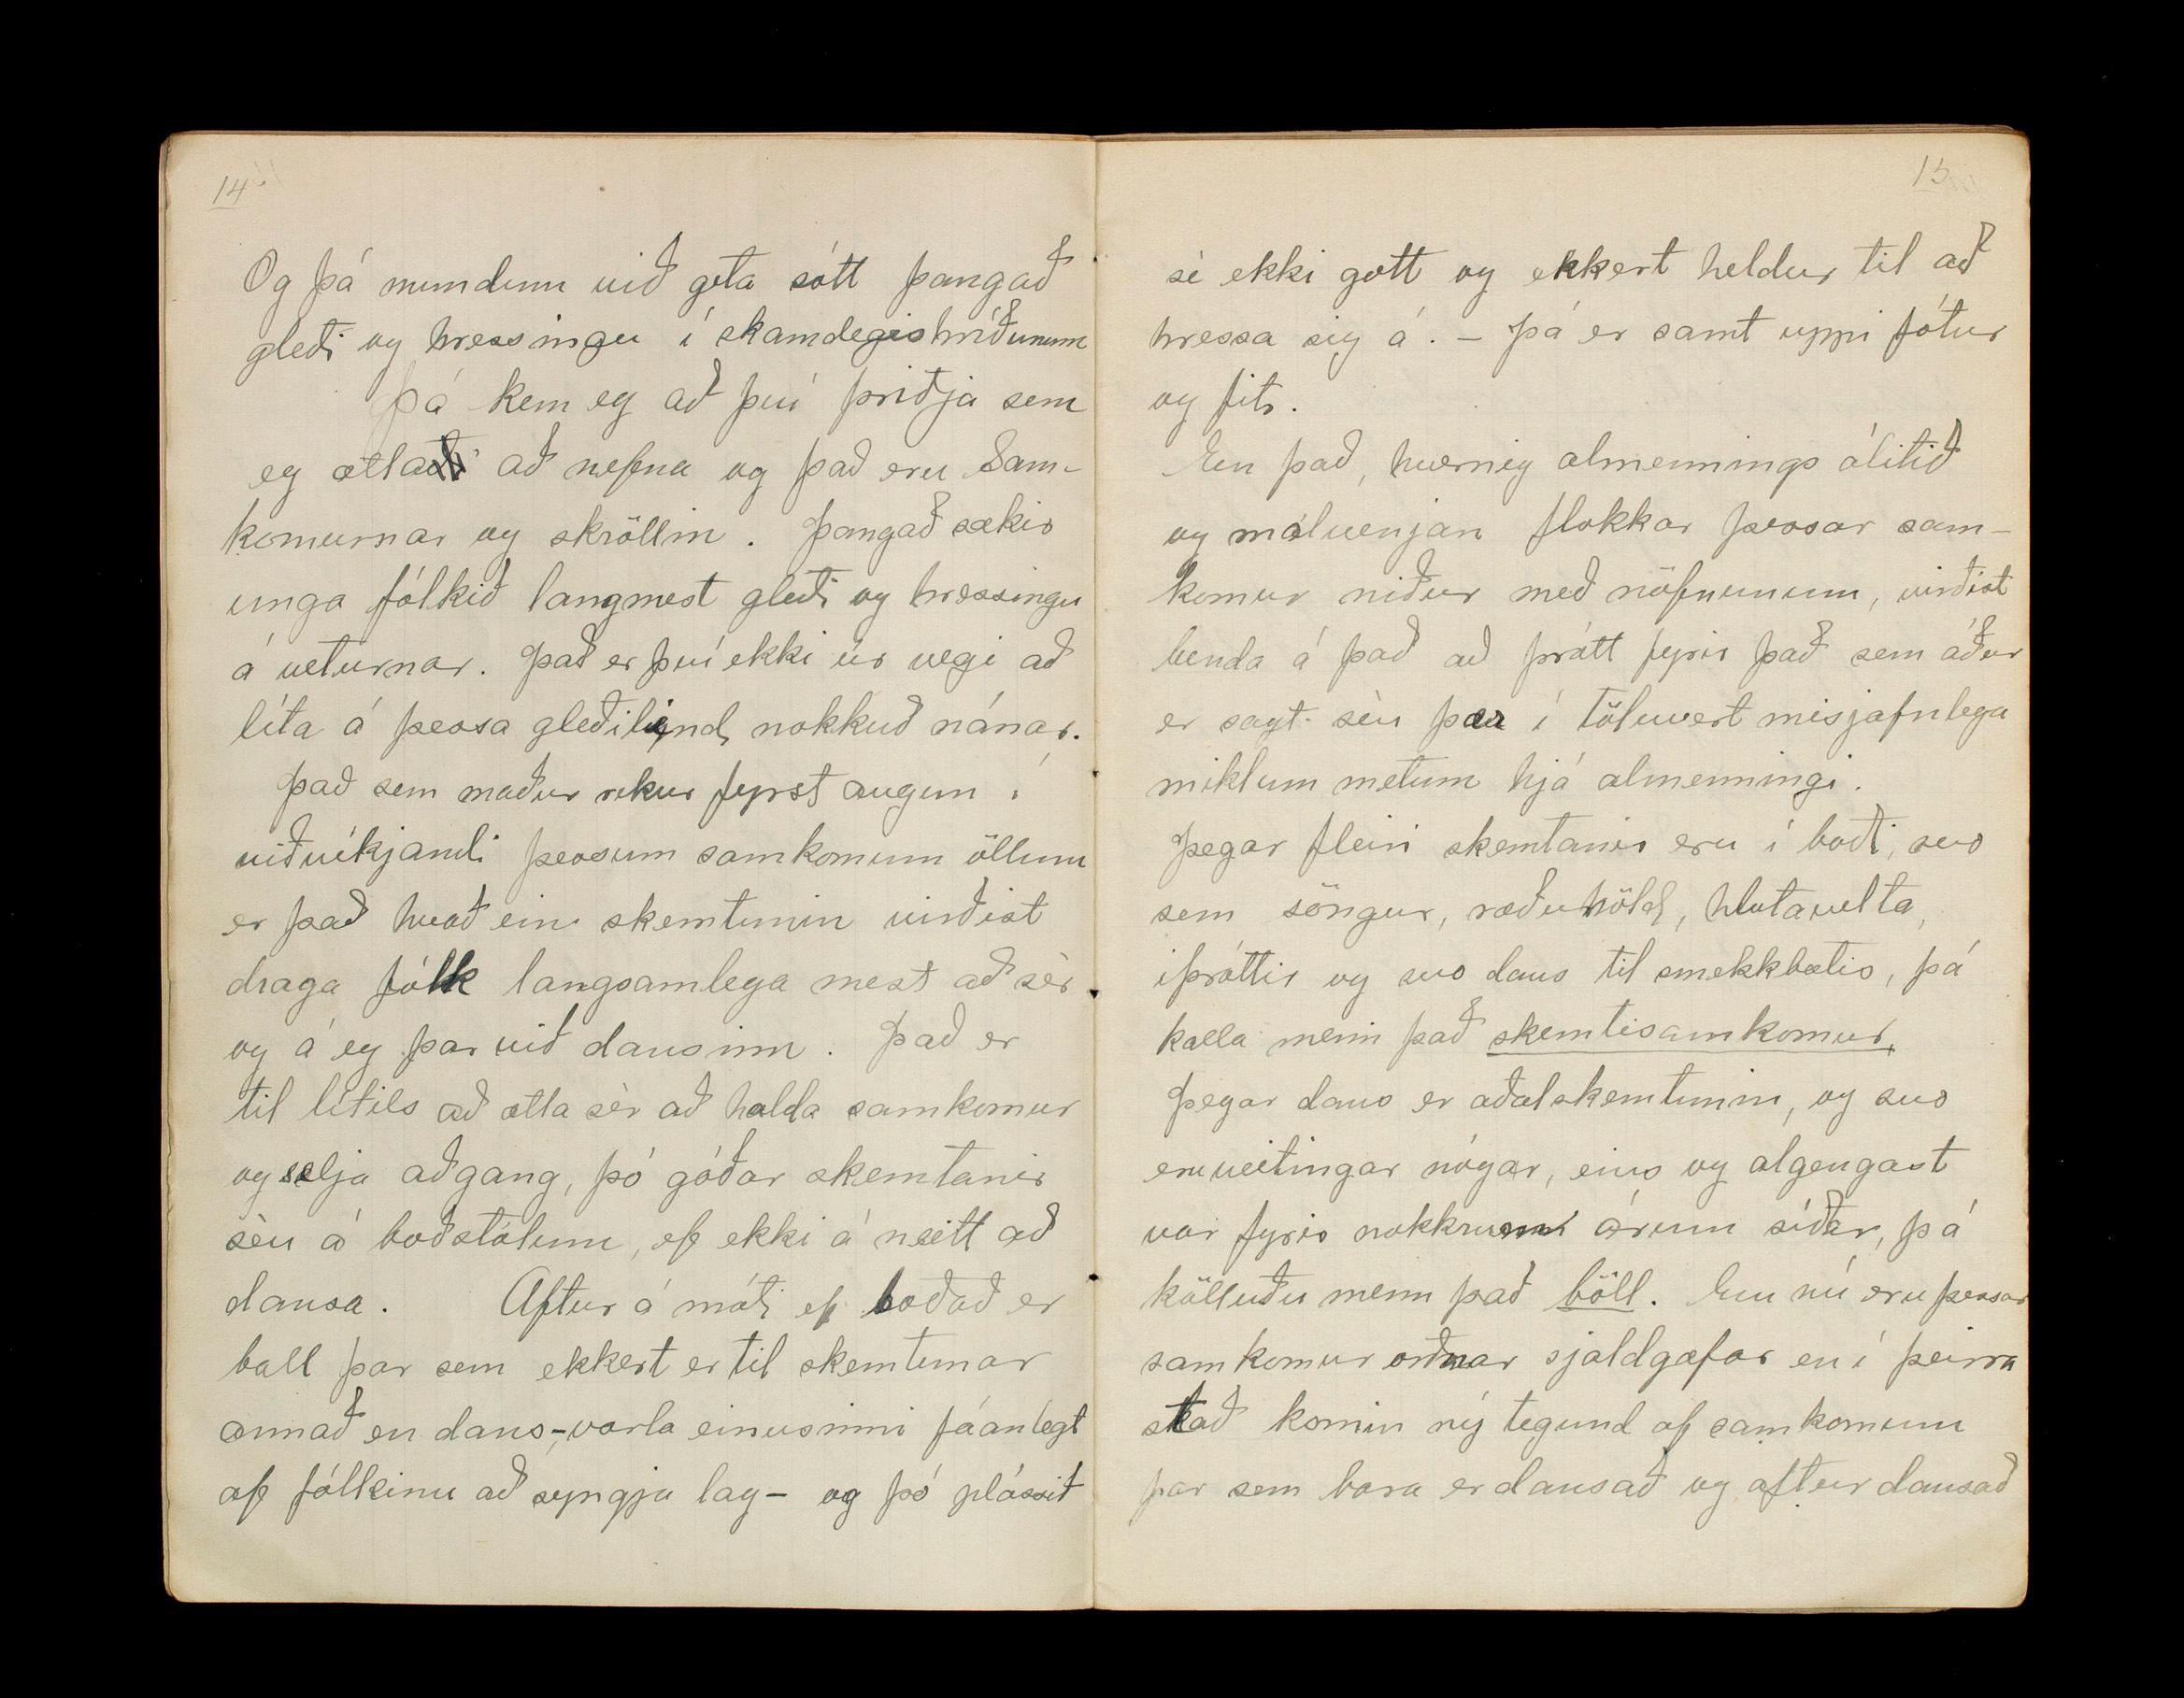 14.
Og þá mundum við geta sótt þangað
gleði og hressingu í skamdegishríðunum
Þá kem eg að því þriðja sem
eg ætlaði að nefna og það eru Sam-
komurnar og skröllin. Þangað sækir
unga fólkið langmest gleði og hressingu
á veturnar. Það er því ekki úr vegi að
líta á þessa gleðilind nokkuð nánar.
Það sem maður rekur fyrst augun í
viðvíkjandi þessum samkomum öllum
er það hvað ein skemtunin virðist
draga fólk langsamlega mest að sèr
og á eg þar við dansinn. Það er
til lítils að ætla sèr að halda samkomur
og selja aðgang, þó góðar skemtanir
sèu á boðstólum, ef ekki á neitt að
dansa. Aftur á móti ef boðað er
ball þar sem ekkert er til skemtunar
annað en dans-, varla einusinni fáanlegt
af fólkinu að syngja lag- og þó plássið
15
sè ekki gott og ekkert heldur til að
hressa sig á. - Þá er samt uppi fótur
og fit.
En það, hvernig almennings álitið
og málvenjan flokkar þessar sam-
komur niður með nöfnunum, virðist
benda á það að þrátt fyrir það sem áður
er sagt sèu þær í töluvert misjafnlega
miklum metum hjá almenningi.
Þegar fleiri skemtanir eru í boði, svo
sem söngur, ræðuhöld, hlutavelta,
iþróttir og svo dans til smekkbætis, þá
kalla menn það skemtisamkomur,
Þegar dans er aðalskemtunin, og svo
eru veitingar nógar, eins og algengast
var fyrir nokkrum árum síðar, þá
kölluðu menn það böll. En nú eru þessar
samkomur orðnar sjaldgæfar en í þeirra
stað komin ný tegund af samkomum
þar sem bara er dansað og aftur dansað